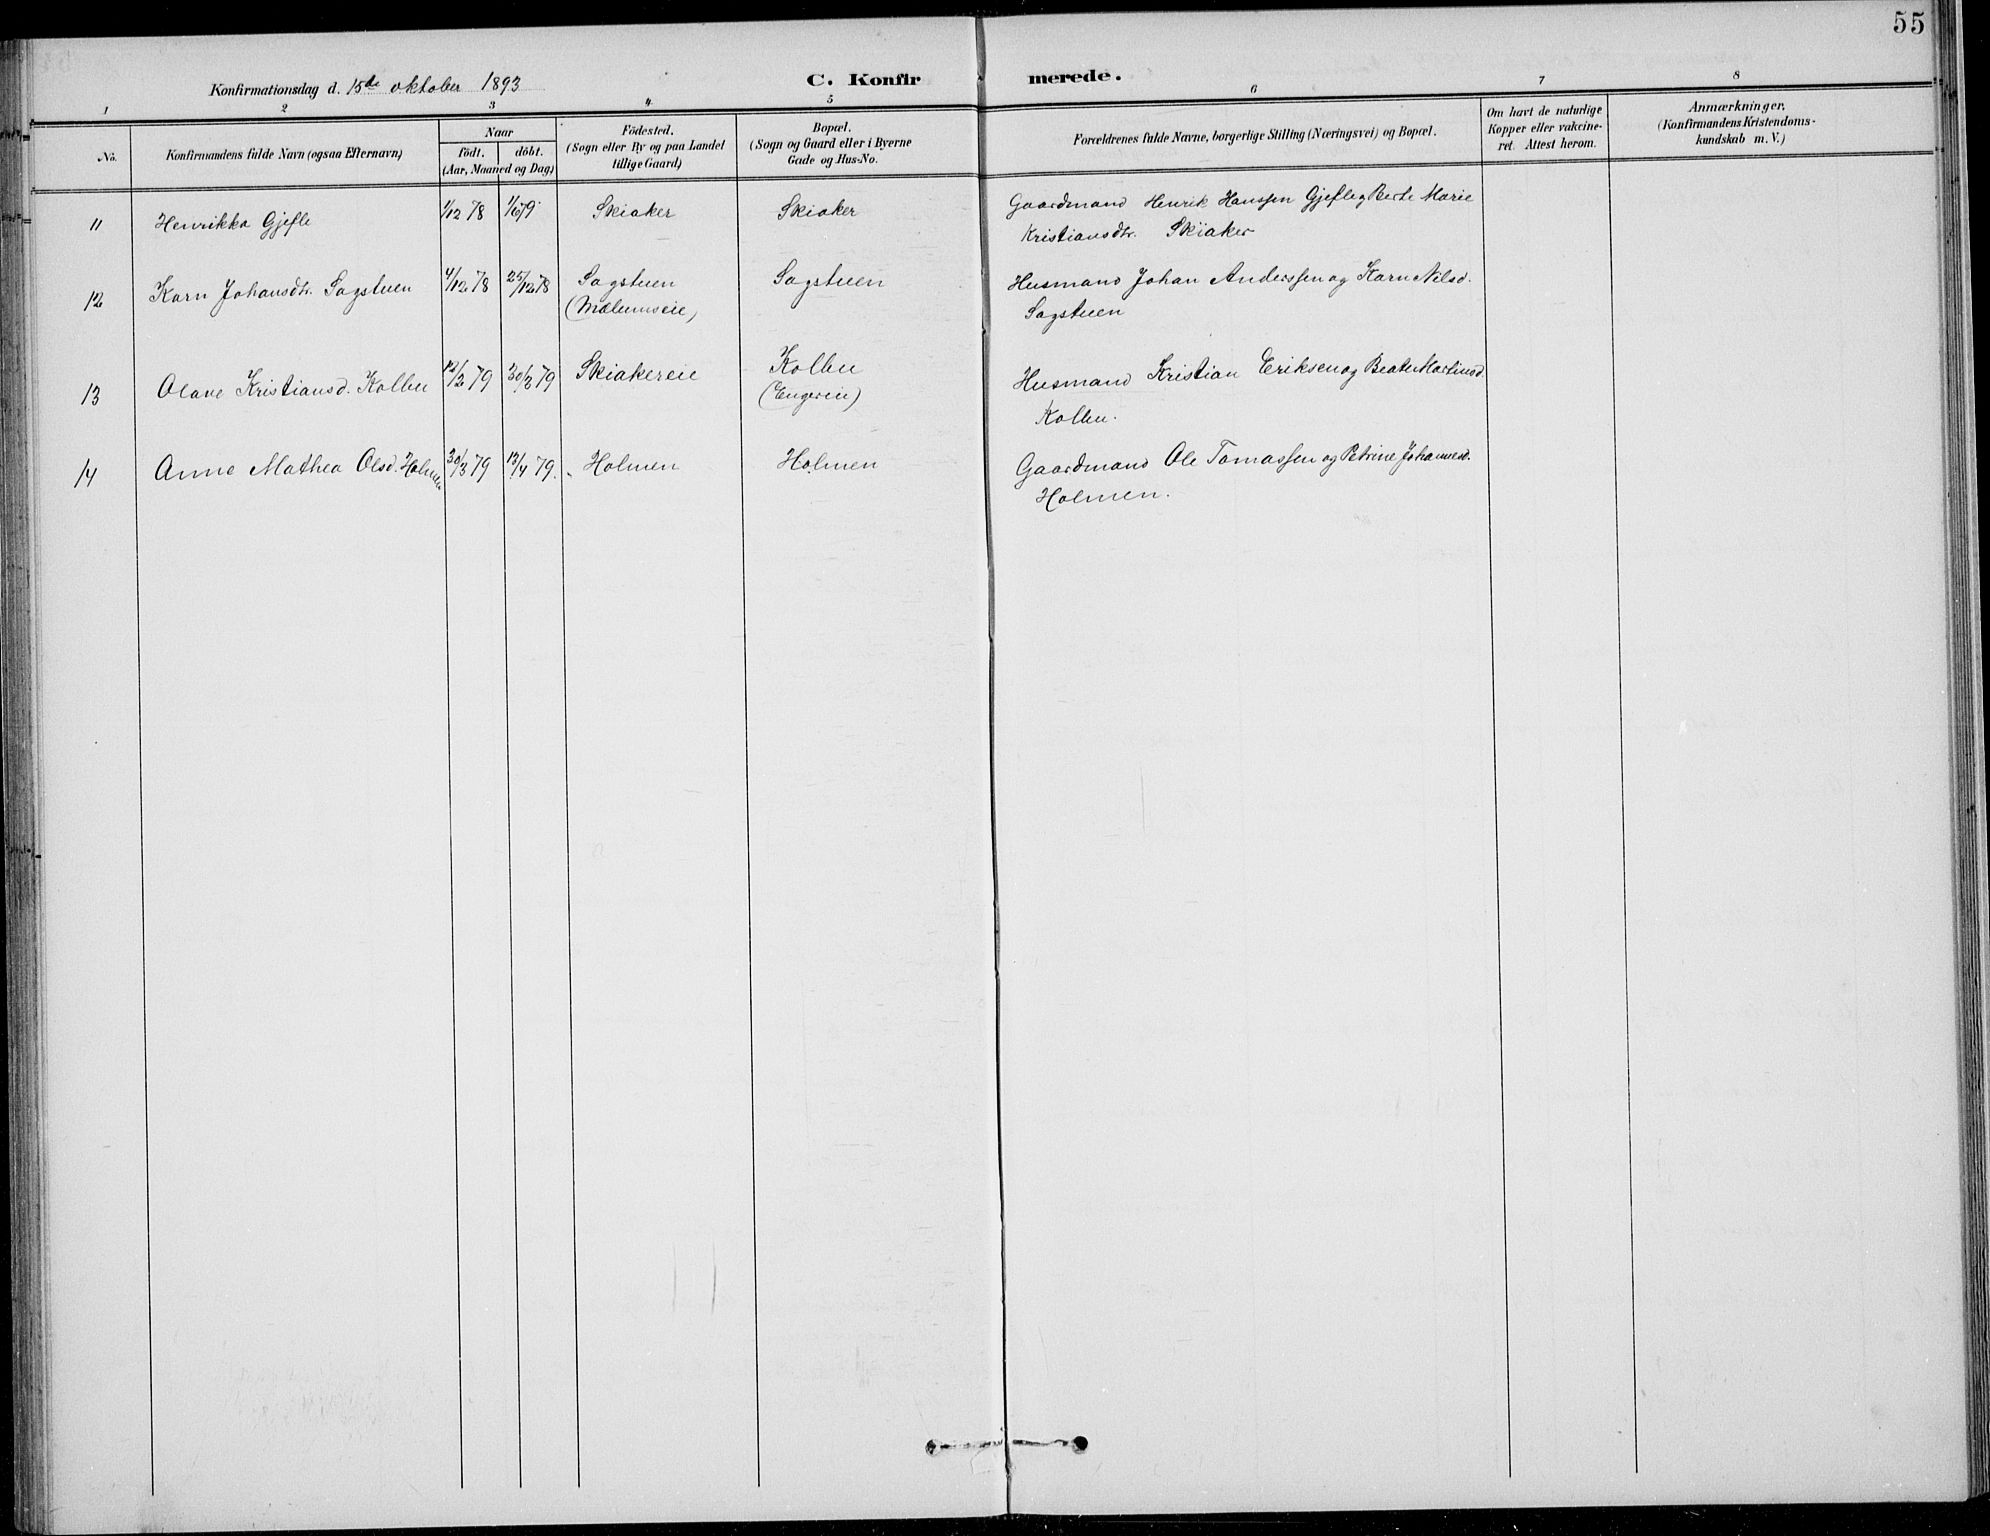 55
Konfirmationsdag d. 15de oktober 1893
C. Konfir merede.
1 2 3 4 5 6 7 8
No.
Konfirmandens fulde Navn (ogsaa Efternavn)
Naar
födt. döbt.
(Aar, Maaned og Dag)
Födested.
(Sogn eller By og paa Landet
tillige Gaard)
Bopæl.
(Sogn og Gaard eller i Byerne
Gade og Hus-No.
Forældrenes fulde Navne, borgerlige Stilling (Næringsvei) og Bopæl.
Om havt de naturlige
Kopper eller vakcine-
ret. Attest herom.
Anmærkninger.
(Konfirmandens Kristendoms-
kundskab m. V.)
11 Henrikka Gjefle 1/12 78 1/6 79 Skiaker Skiaker Gaardmand Henrik Hanssen Gjefle og Berte Marie
Kristiansdtr. Skiaker
12 Karn Johansdtr. Sagstuen 4/12 78 25/12 78 Sagstuen Sagstuen Husmand Johan Anderssen og Karn Nilsd.
(Mælumseie) Sagstuen
13 Olave Kristiansd. Kolbu 12/2 79 30/3 79 Skiakereie Kolbu Husmand Kristian Eriksen og Beate Martinsd.
(Engereie) Kolbu.
14 Anne Mathea Olsd. Holmen 30/3 79 13/4 79. Holmen Holmen Gaardmand Ole Tomassen og Petrine Johannesd.
Holmen.